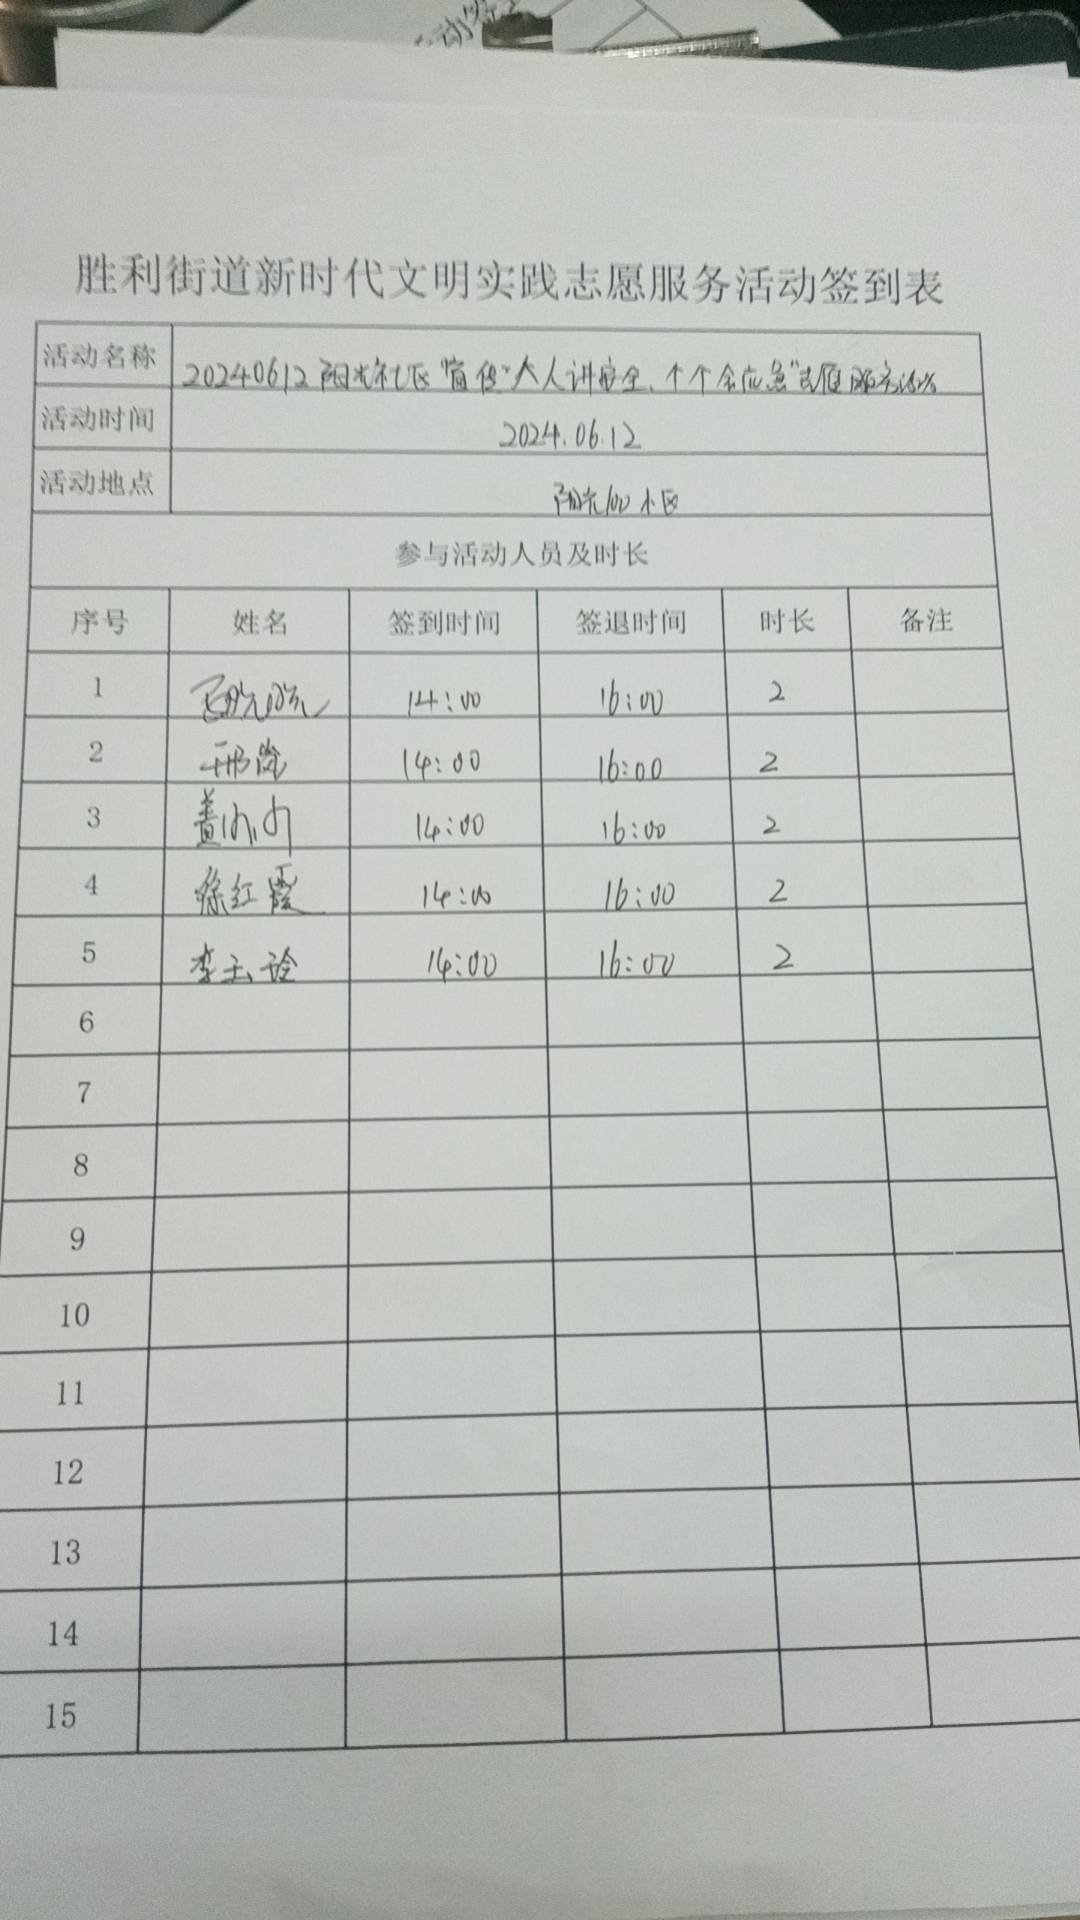 胜利街道新时代文明实践志愿服务活动签到表
活动名称 20240612阳光社区"宣传"人人讲安全、个个会应急"志愿服务活动
活动时间 2024.06.12
活动地点 阳光100小区
参与活动人员及时长
序号 姓名 签到时间 签退时间 时长 备注
1 14:00 16:00 2
2 邢岚 14:00 16:00 2
3 14:00 16:00 2
4 徐红霞 14:00 16:00 2
5 李玉玲 14:00 16:00 2
6
7
8
9
10
11
12
13
14
15